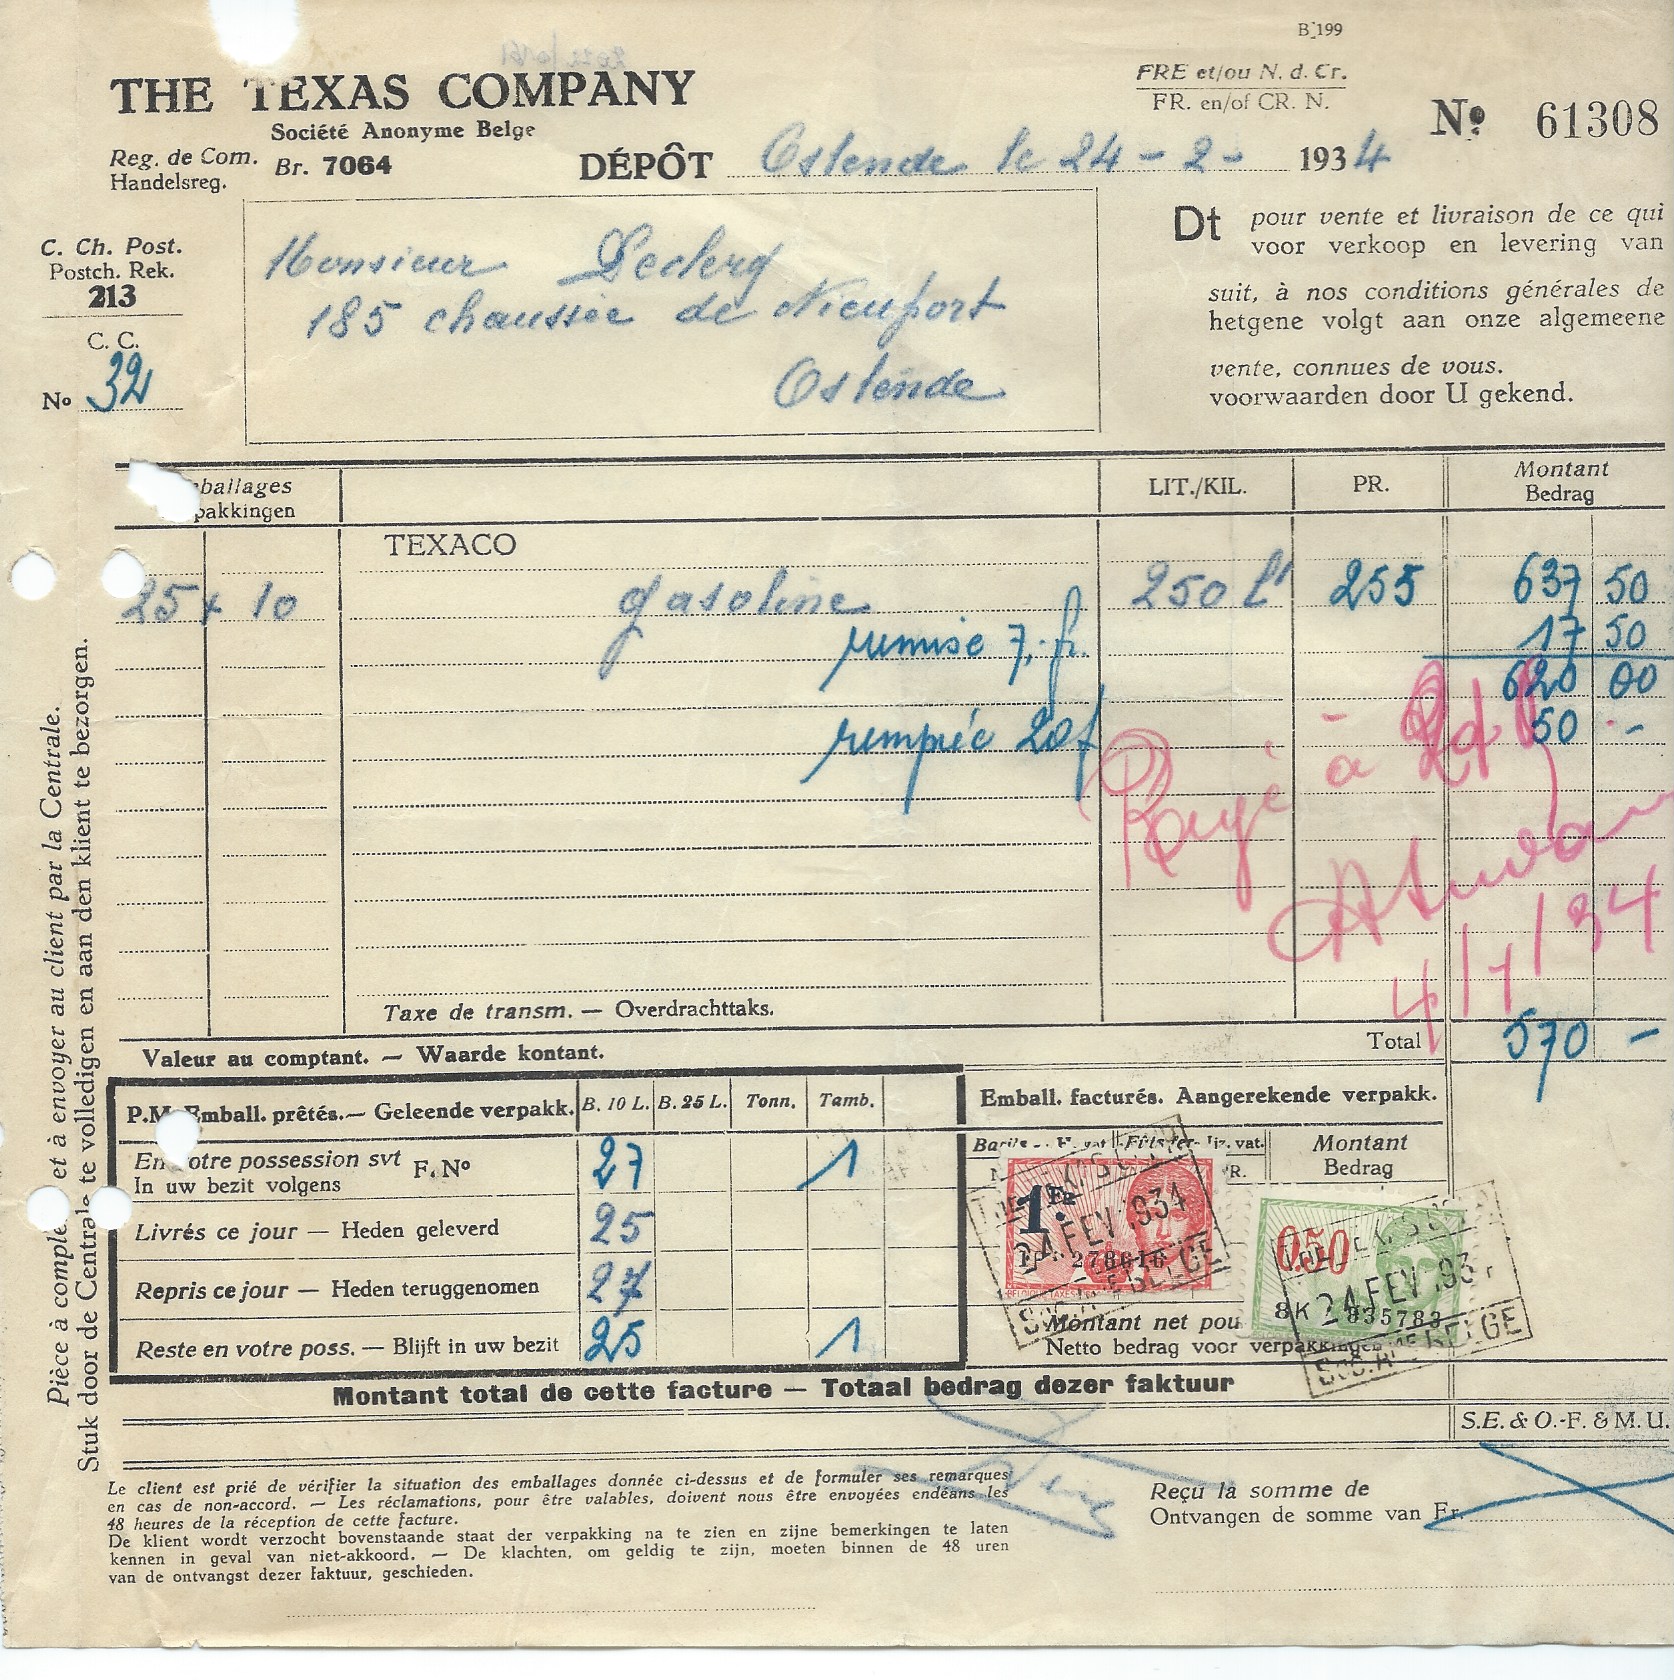 B.199
THE TEXAS COMPANY
Société Anonyme Belge
Reg. de Com.
Handelsreg.
Br. 7064
FRE et/ou N. d. Cr.
FR. en/of CR. N.
Nº 61308
DÉPÔT Ostende le 24-2- 1934
C. Ch. Post.
Postch. Rek.
213
C. C.
Nº 32
Monsieur Leclerq
185 chaussée de Nieuport
Ostende
Dt pour vente et livraison de ce qui
voor verkoop en levering van
suit, à nos conditions générales de
hetgene volgt aan onze algemeene
vente, connues de vous.
voorwaarden door U gekend.
ballages
pakkingen
LIT./KIL.
PR.
Montant
Bedrag
TEXACO
25 x 10 gasoline 250 L 255 637 50
remise 7,- fr. 17 50
620 00
20f 50 -
Payé à
4/1/34
Taxe de transm. — Overdrachttaks.
Valeur au comptant. — Waarde kontant.
Total 570 -
P.M. Emball. prêtés.— Geleende verpakk. B. 10 L. B. 25 L. Tonn. Tamb.
En votre possession svt
In uw bezit volgens
F. Nº 27 1
Livrés ce jour — Heden geleverd 25
Repris ce jour — Heden teruggenomen 27
Reste en votre poss. — Blijft in uw bezit 25 1
Emball. facturés. Aangerekende verpakk.
Montant
Bedrag
1 Fr
24 FEV 1934
278616
0.50
24 FEV 193
8K 835783
BELGE
Montant net pou
Netto bedrag voor verpakkingen
Montant total de cette facture — Totaal bedrag dezer faktuur
S.E. & O.-F. & M. U.
Le client est prié de vérifier la situation des emballages donnée ci-dessus et de formuler ses remarques
en cas de non-accord. — Les réclamations, pour être valables, doivent nous être envoyées endéans les
48 heures de la réception de cette facture.
De klient wordt verzocht bovenstaande staat der verpakking na te zien en zijne bemerkingen te laten
kennen in geval van niet-akkoord. — De klachten, om geldig te zijn, moeten binnen de 48 uren
van de ontvangst dezer faktuur, geschieden.
Reçu la somme de
Ontvangen de somme van Fr.
Pièce à comple et à envoyer au client par la Centrale.
Stuk door de Centrale te volledigen en aan den klient te bezorgen.